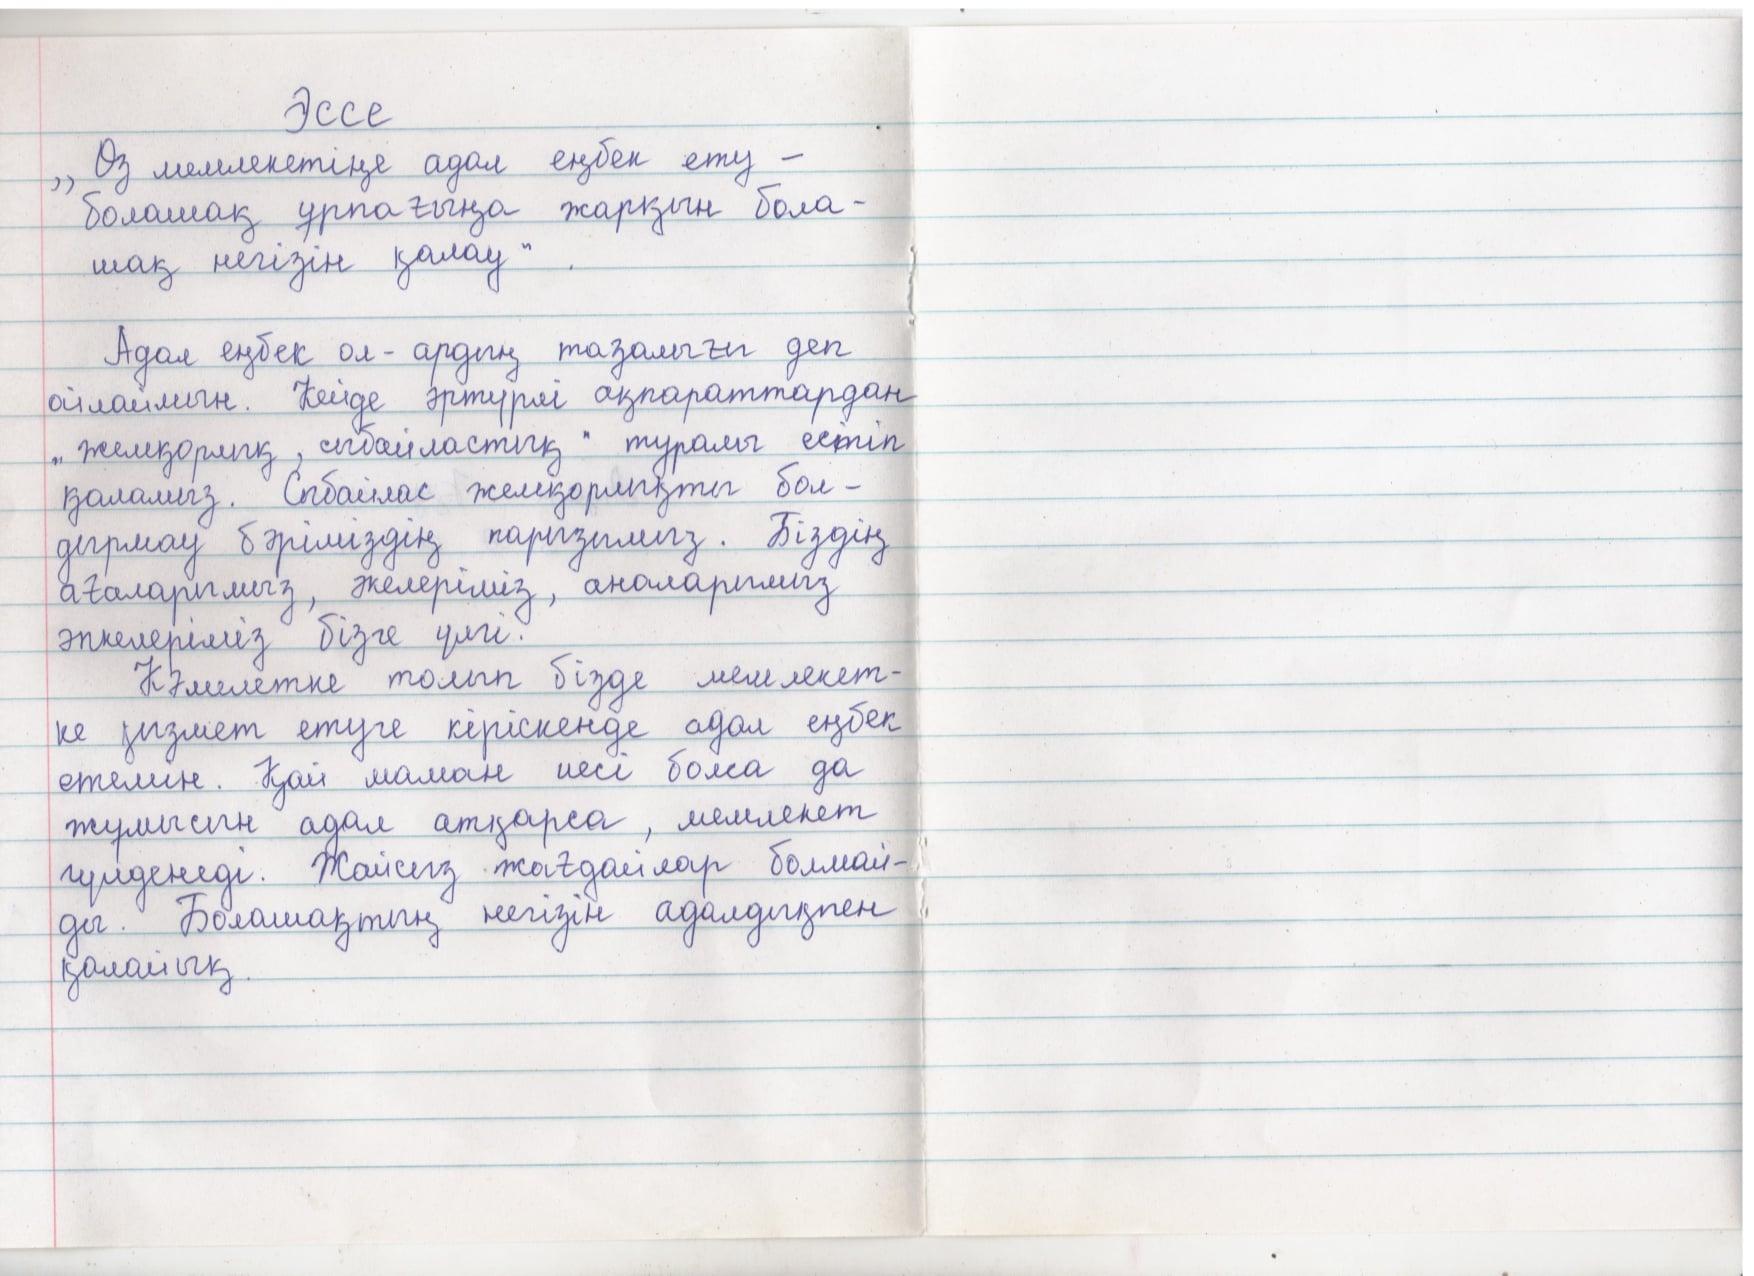 Эссе
„Өз мемлекетіңе адал еңбек ету –
болашақ ұрпағыңа жарқын бола-
шақ негізін қалау“.
Адал еңбек ол - ардың тазалығы деп
ойлаймын. Кейде әртүрлі ақпараттардан
„жемқорлық, сыбайластық“ туралы естіп
қаламыз. Сыбайлас жемқорлықты бол-
дырмау бәріміздің парызымыз. Біздің
ағаларымыз, әкелеріміз, аналарымыз
әпкелеріміз бізге үлгі.
Кәмелетке толып бізде мемлекет-
ке қызмет етуге кіріскенде адал еңбек
етемін. Қай маман иесі болса да
жұмысын адал атқарса, мемлекет
гүлденеді. Жайсыз жағдайлар болмай-
ды. Болашақтың негізін адалдықпен
қалайық.